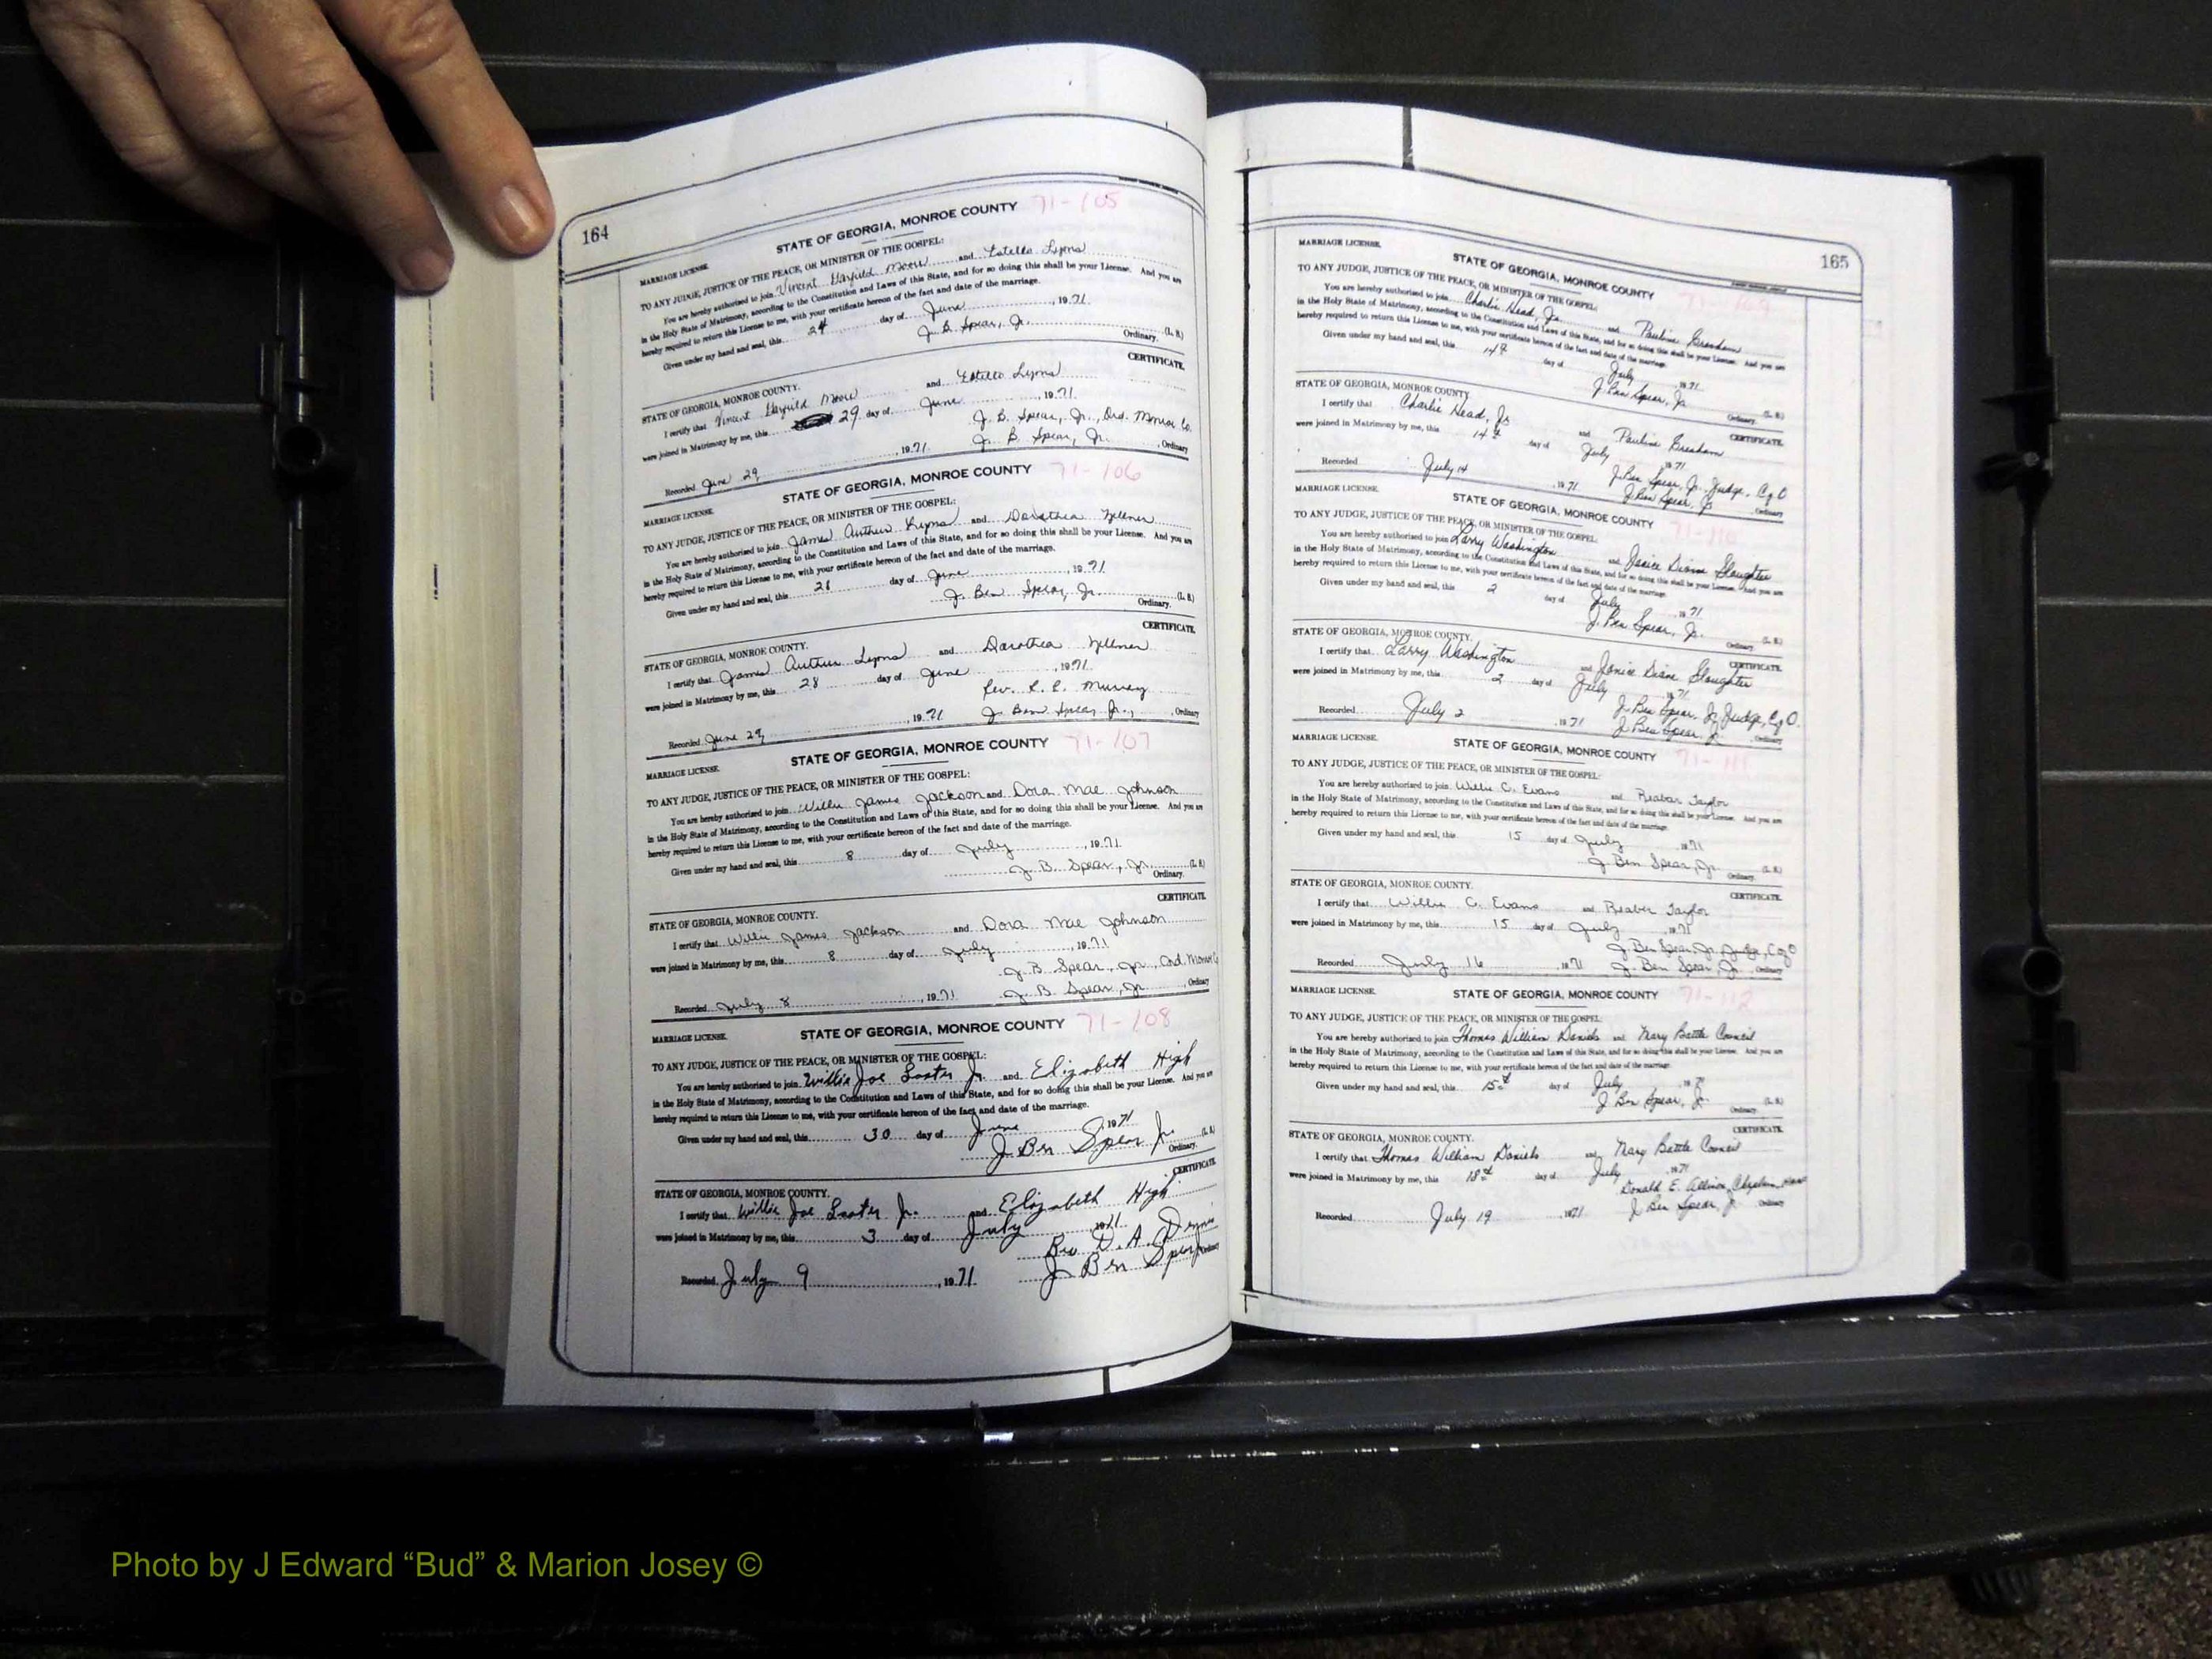 164
STATE OF GEORGIA, MONROE COUNTY 71-105
MARRIAGE LICENSE.
TO ANY JUDGE, JUSTICE OF THE PEACE, OR MINISTER OF THE GOSPEL:
You are hereby authorized to join Vincent Garfield Moore and Estello Lyons
in the Holy State of Matrimony, according to the Constitution and Laws of this State, and for so doing this shall be your License. And you are
hereby required to return this License to me, with your certificate hereon of the fact and date of the marriage.
Given under my hand and seal, this 24 day of June, 1971.
J. B. Spear, Jr. (L. S.)
Ordinary.
CERTIFICATE.
STATE OF GEORGIA, MONROE COUNTY.
I certify that Vincent Garfield Moore and Estello Lyons
were joined in Matrimony by me, this 29 day of June, 1971.
J. B. Spear, Jr., Ord. Monroe Co.
Recorded June 29, 1971. J. B. Spear, Jr., Ordinary
STATE OF GEORGIA, MONROE COUNTY 71-106
MARRIAGE LICENSE.
TO ANY JUDGE, JUSTICE OF THE PEACE, OR MINISTER OF THE GOSPEL:
You are hereby authorized to join James Arthur Lyons and Dorothea Zellner
in the Holy State of Matrimony, according to the Constitution and Laws of this State, and for so doing this shall be your License. And you are
hereby required to return this License to me, with your certificate hereon of the fact and date of the marriage.
Given under my hand and seal, this 28 day of June, 1971
J. Ben Spear, Jr. (L. S.)
Ordinary.
CERTIFICATE.
STATE OF GEORGIA, MONROE COUNTY.
I certify that James Arthur Lyons and Dorothea Zellner
were joined in Matrimony by me, this 28 day of June, 1971.
Rev. Murray
Recorded June 29, 1971 J. Ben Spear, Jr., Ordinary
STATE OF GEORGIA, MONROE COUNTY 71-107
MARRIAGE LICENSE.
TO ANY JUDGE, JUSTICE OF THE PEACE, OR MINISTER OF THE GOSPEL:
You are hereby authorized to join Willie James Jackson and Dora Mae Johnson
in the Holy State of Matrimony, according to the Constitution and Laws of this State, and for so doing this shall be your License. And you are
hereby required to return this License to me, with your certificate hereon of the fact and date of the marriage.
Given under my hand and seal, this 8 day of July, 1971.
J. B. Spear, Jr. (L. S.)
Ordinary.
CERTIFICATE.
STATE OF GEORGIA, MONROE COUNTY.
I certify that Willie James Jackson and Dora Mae Johnson
were joined in Matrimony by me, this 8 day of July, 1971
J. B. Spear, Jr., Ord. Monroe
Recorded July 8, 1971 J. B. Spear, Jr., Ordinary
STATE OF GEORGIA, MONROE COUNTY 71-108
MARRIAGE LICENSE.
TO ANY JUDGE, JUSTICE OF THE PEACE, OR MINISTER OF THE GOSPEL:
You are hereby authorized to join Willie Joe Jr. and Elizabeth High
in the Holy State of Matrimony, according to the Constitution and Laws of this State, and for so doing this shall be your License. And you are
hereby required to return this License to me, with your certificate hereon of the fact and date of the marriage.
Given under my hand and seal, this 30 day of June, 1971
J. Ben Spear Jr. (L. S.)
Ordinary.
CERTIFICATE.
STATE OF GEORGIA, MONROE COUNTY.
I certify that Willie Joe Jr. and Elizabeth High
were joined in Matrimony by me, this 3 day of July 1971
D. A. Dennis
Recorded July 9, 1971. J Ben Spear Ordinary
165
MARRIAGE LICENSE.
STATE OF GEORGIA, MONROE COUNTY 71-109
TO ANY JUDGE, JUSTICE OF THE PEACE, OR MINISTER OF THE GOSPEL:
You are hereby authorized to join Charlie Head, Jr. and Pauline Gresham
in the Holy State of Matrimony, according to the Constitution and Laws of this State, and for so doing this shall be your License. And you are
hereby required to return this License to me, with your certificate hereon of the fact and date of the marriage.
Given under my hand and seal, this 14th day of July 1971
J Ben Spear, Jr. (L. S.)
Ordinary.
STATE OF GEORGIA, MONROE COUNTY. CERTIFICATE.
I certify that Charlie Head, Jr. and Pauline Gresham
were joined in Matrimony by me, this 14th day of July 1971
J. Ben Spear, Jr. Judge, C of O
Recorded July 14, 1971 J. Ben Spear, Jr. Ordinary
MARRIAGE LICENSE.
STATE OF GEORGIA, MONROE COUNTY 71-110
TO ANY JUDGE, JUSTICE OF THE PEACE, OR MINISTER OF THE GOSPEL:
You are hereby authorized to join Larry Washington and Janice Diane Slaughter
in the Holy State of Matrimony, according to the Constitution and Laws of this State, and for so doing this shall be your License. And you are
hereby required to return this License to me, with your certificate hereon of the fact and date of the marriage.
Given under my hand and seal, this 2 day of July 1971
J. Ben Spear, Jr. (L. S.)
Ordinary.
STATE OF GEORGIA, MONROE COUNTY. CERTIFICATE.
I certify that Larry Washington and Janice Diane Slaughter
were joined in Matrimony by me, this 2 day of July 1971
J. Ben Spear, Jr. Judge, C of O.
Recorded July 2, 1971 J. Ben Spear, Jr. Ordinary
MARRIAGE LICENSE.
STATE OF GEORGIA, MONROE COUNTY 71-111
TO ANY JUDGE, JUSTICE OF THE PEACE, OR MINISTER OF THE GOSPEL:
You are hereby authorized to join Willie C. Evans and Reaber Taylor
in the Holy State of Matrimony, according to the Constitution and Laws of this State, and for so doing this shall be your License. And you are
hereby required to return this License to me, with your certificate hereon of the fact and date of the marriage.
Given under my hand and seal, this 15 day of July 1971
J. Ben Spear, Jr. (L. S.)
Ordinary.
STATE OF GEORGIA, MONROE COUNTY. CERTIFICATE.
I certify that Willie C. Evans and Reaber Taylor
were joined in Matrimony by me, this 15 day of July 1971
J. Ben Spear, Jr, Judge, C of O
Recorded July 16, 1971 J. Ben Spear, Jr. Ordinary
MARRIAGE LICENSE. STATE OF GEORGIA, MONROE COUNTY 71-112
TO ANY JUDGE, JUSTICE OF THE PEACE, OR MINISTER OF THE GOSPEL:
You are hereby authorized to join Thomas William Daniels and Mary Battle Council
in the Holy State of Matrimony, according to the Constitution and Laws of this State, and for so doing this shall be your License. And you are
hereby required to return this License to me, with your certificate hereon of the fact and date of the marriage.
Given under my hand and seal, this 15th day of July 1971
J Ben Spear, Jr. (L. S.)
Ordinary.
CERTIFICATE.
STATE OF GEORGIA, MONROE COUNTY.
I certify that Thomas William Daniels and Mary Battle Council
were joined in Matrimony by me, this 18th day of July 1971
Donald E. Allison, Chaplain
Recorded July 19, 1971 J Ben Spear, Jr Ordinary
Photo by J Edward “Bud” & Marion Josey ©